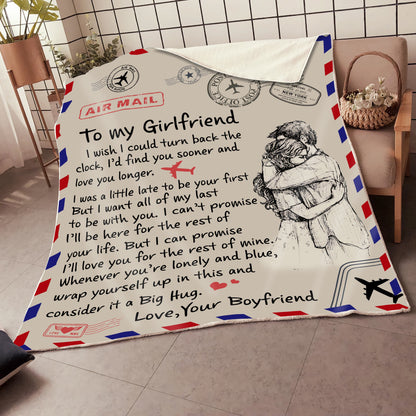 AIR MAIL
NEW YORK
To my Girlfriend
I wish I could turn back the
clock, I'd find you sooner and
love you longer.
I was a little late to be your first
But I want all of my last
to be with you. I can't promise
I'll be here for the rest of
your life. But I can promise
I'll love you for the rest of mine.
Whenever you're lonely and blue,
wrap yourself up in this and
consider it a Big Hug.
Love,Your Boyfriend